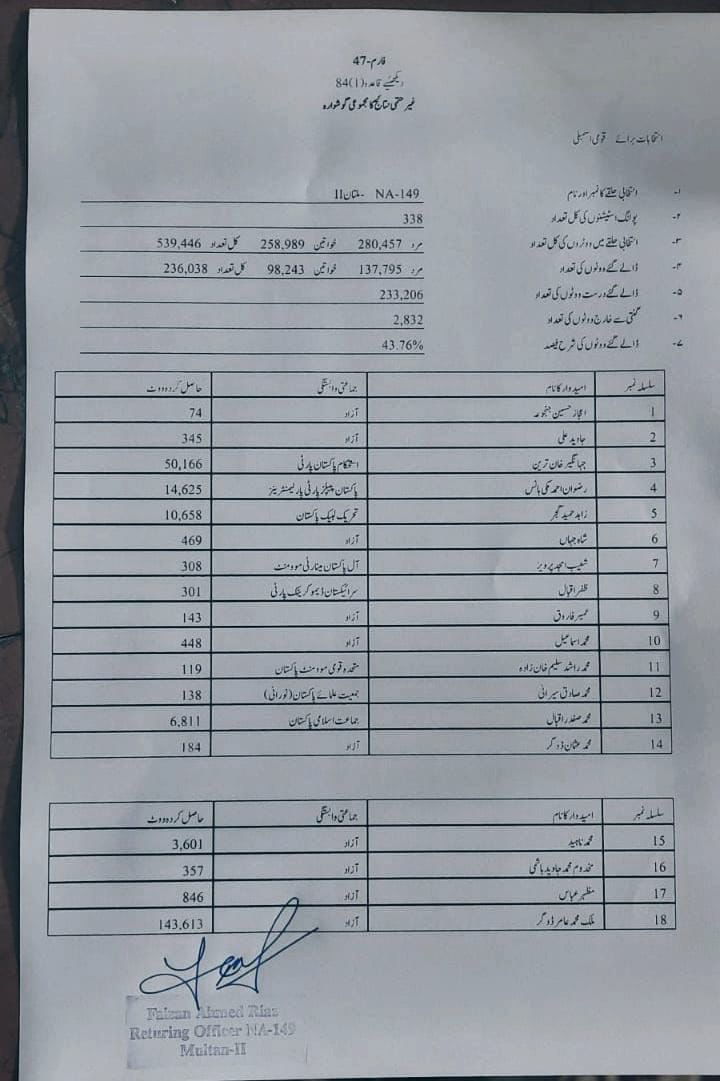 فارم-47
دیکھئیے قاعدہ (1)84
غیر حتمی نتائج کا مجموعی گوشوارہ
انتخابات برائے قومی اسمبلی
۱- انتخابی حلقے کا نمبر اور نام NA-149 -ملتان II
۲- پولنگ اسٹیشنوں کی کل تعداد 338
۳- انتخابی حلقے میں ووٹروں کی کل تعداد مرد 280,457 خواتین 258,989 کل تعداد 539,446
۴- ڈالے گئے ووٹوں کی تعداد مرد 137,795 خواتین 98,243 کل تعداد 236,038
۵- ڈالے گئے درست ووٹوں کی تعداد 233,206
۶- گنتی سے خارج ووٹوں کی تعداد 2,832
۷- ڈالے گئے ووٹوں کی شرح فیصد 43.76%
سلسلہ نمبر امیدوار کا نام جماعتی وابستگی حاصل کردہ ووٹ
1 اعجاز حسین جنجوعہ آزاد 74
2 جاوید علی آزاد 345
3 جہانگیر خان ترین استحکام پاکستان پارٹی 50,166
4 رضوان احمد مکی ہانس پاکستان پیپلز پارٹی پارلیمنٹیرینز 14,625
5 زاہد حمید گجر تحریک لبیک پاکستان 10,658
6 شاہ جہاں آزاد 469
7 شعیب امجد پرویز آل پاکستان مینارٹی موومنٹ 308
8 ظفر اقبال سرائیکستان ڈیموکریٹک پارٹی 301
9 عمیر فاروق آزاد 143
10 محمد اسماعیل آزاد 448
11 محمد راشد سلیم خان زادہ متحدہ قومی موومنٹ پاکستان 119
12 محمد صادق سیرانی جمعیت علمائے پاکستان (نورانی) 138
13 محمد صفدر اقبال جماعت اسلامی پاکستان 6,811
14 محمد عثمان ڈوگر آزاد 184
سلسلہ نمبر امیدوار کا نام جماعتی وابستگی حاصل کردہ ووٹ
15 محمد ناہید آزاد 3,601
16 مخدوم محمد جاوید ہاشمی آزاد 357
17 مظہر عباس آزاد 846
18 ملک محمد عامر ڈوگر آزاد 143,613
Faizan Ahmed Riaz
Returing Officer NA-149
Multan-II